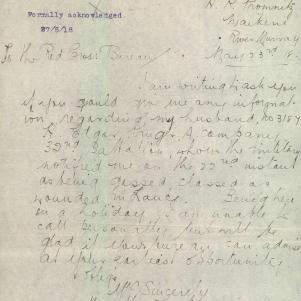 Formally acknowledged.
27/5/18
Waikerie
River Murray
May 23rd 18
To the Red Cross Bureau
I am writing to ask you
if you could give me any informat-
ion regarding my husband, no 3187
A. Edgar A Company
Battalion whom the military
notified me on the 22nd instant
as being gassed, classed as
wounded in France. Being here
on a holiday I am unable to
call personally, but will be
glad if you can advise
at your earliest opportunity
Yours
Sincerely